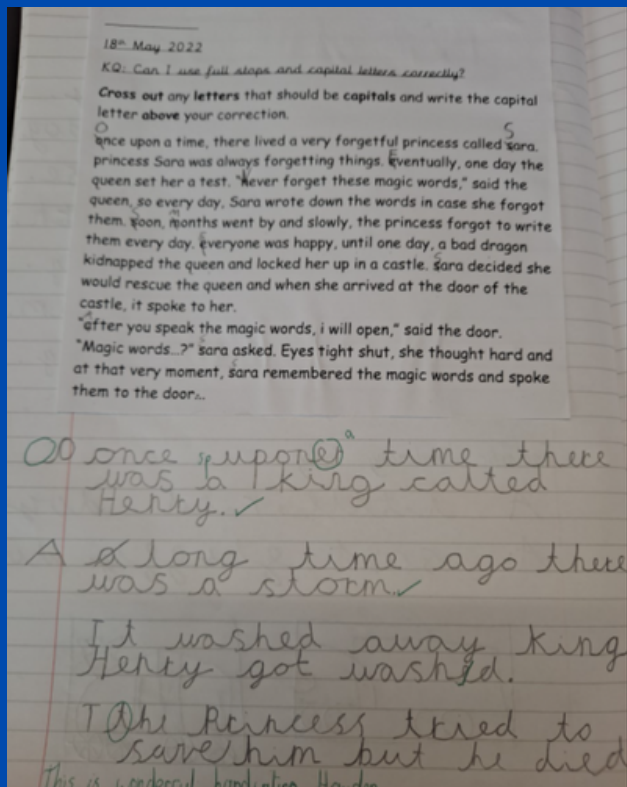 18th May 2022
KQ: Can I use full stops and capital letters correctly?
Cross out any letters that should be capitals and write the capital
letter above your correction.
O S
once upon a time, there lived a very forgetful princess called sara.
princess Sara was always forgetting things. eventually, one day the
queen set her a test. "never forget these magic words," said the
queen, so every day, Sara wrote down the words in case she forgot
them. soon, months went by and slowly, the princess forgot to write
them every day. everyone was happy, until one day, a bad dragon
kidnapped the queen and locked her up in a castle. sara decided she
would rescue the queen and when she arrived at the door of the
castle, it spoke to her.
"after you speak the magic words, i will open," said the door.
"Magic words…?" sara asked. Eyes tight shut, she thought hard and
at that very moment, sara remembered the magic words and spoke
them to the door...
OO once sp upon e a time there
was a king called
Henry.
A a long time ago there
was a storm.
It washed away King
Henry got washed.
T The Princess tried to
save him but he died
This is wonderful handwriting